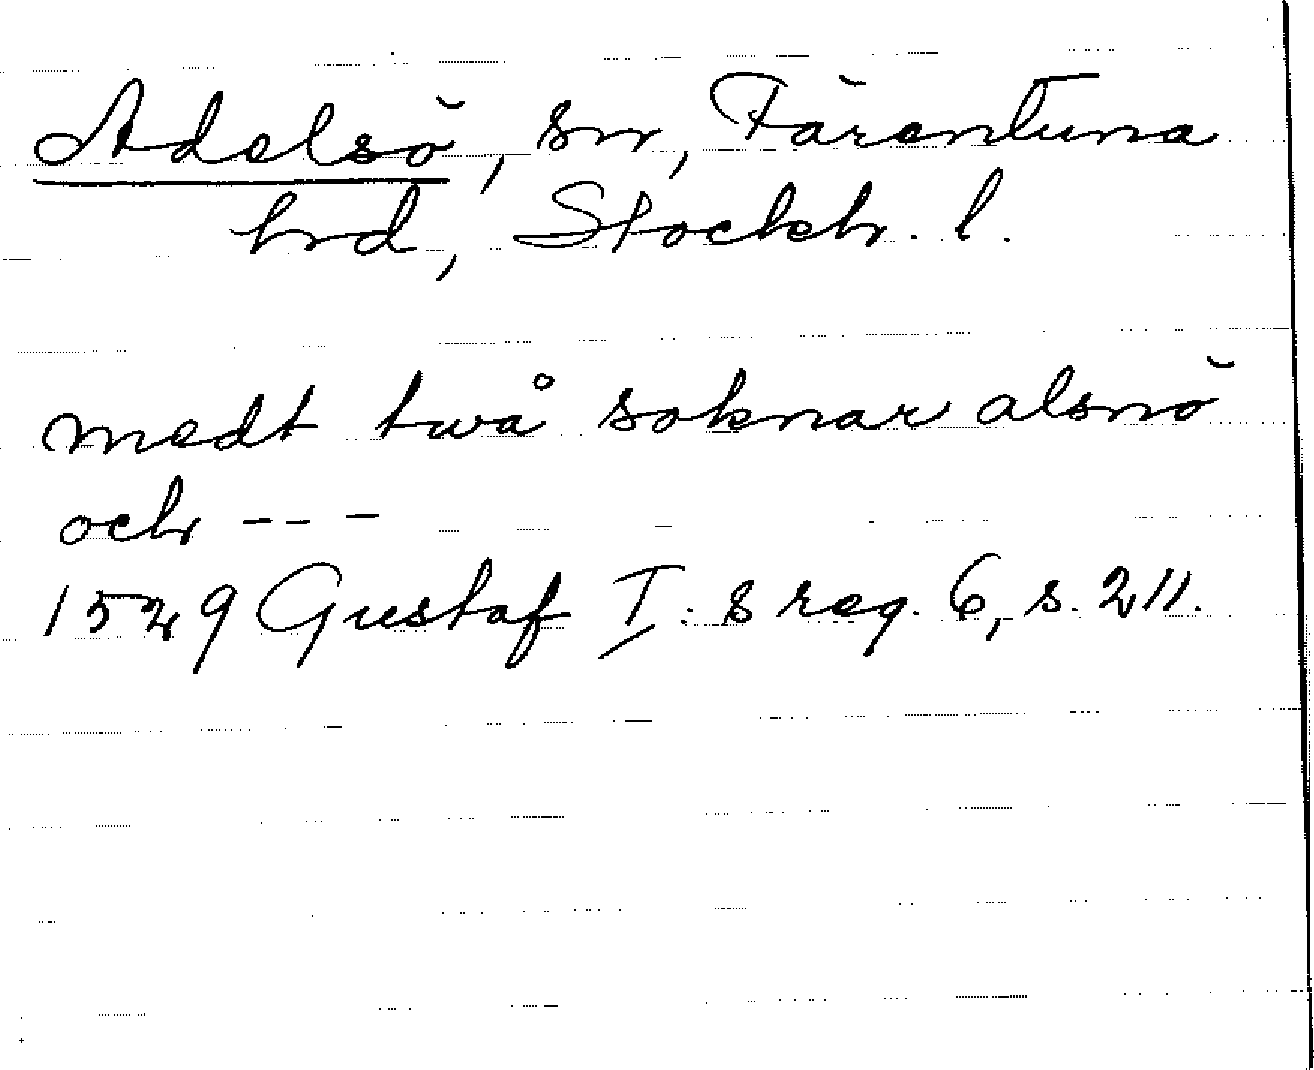 Adelsö, sn, Färentuna
hrd, Stockh. l.
medt twå soknar alsnö
och - - -
1529 Gustaf I:s reg. 6, s. 211.